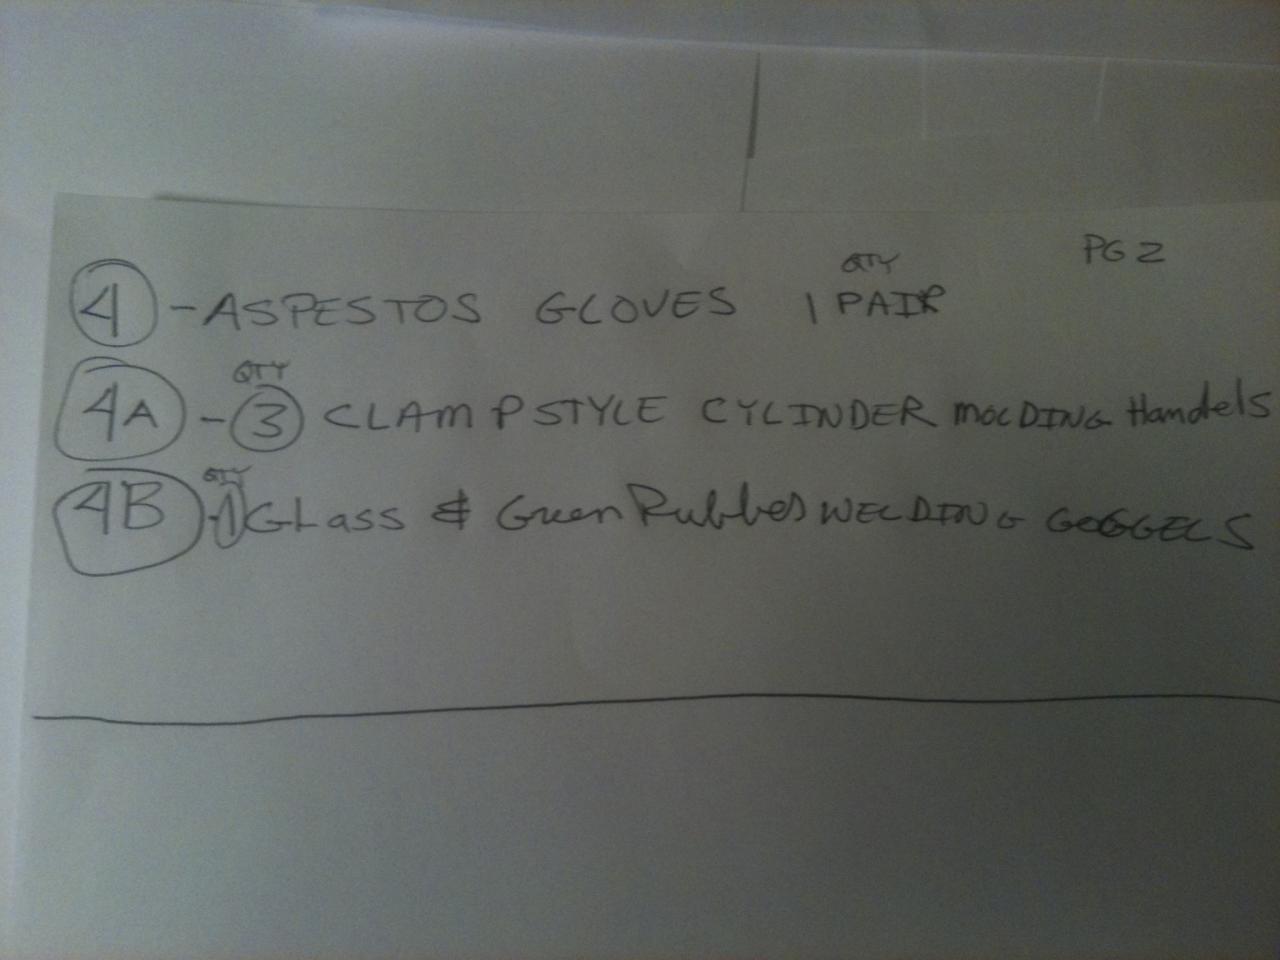 PG 2
QTY
4 - ASPESTOS GLOVES 1 PAIR
QTY
4A - 3 CLAMP STYLE CYLINDER MOLDING Handels
QTY
4B - 1 GLass & Green Rubber WELDING GOGGELS